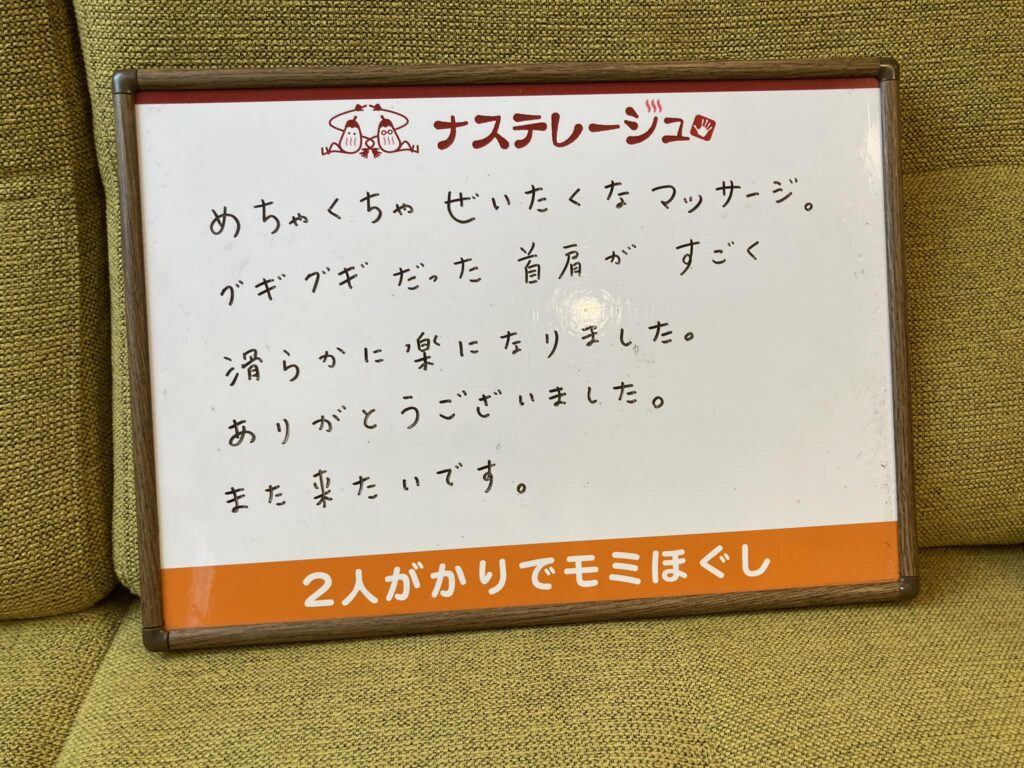 ナステレージュ
めちゃくちゃ ぜいたくな マッサージ。
グギグギ だった 首肩が すごく
滑らかに楽になりました。
ありがとうございました。
また来たいです。
2人がかりでモミほぐし